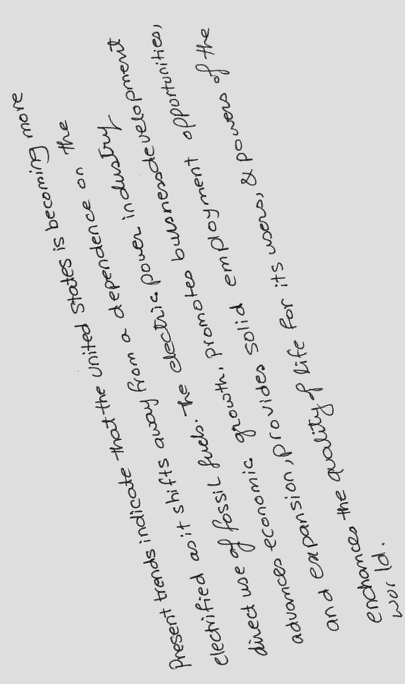 Present trends indicate that the United States is becoming more
electrified as it shifts away from a dependence on the
direct use of fossil fuels. The electric power industry
advances economic growth, promotes business development
and expansion, provides solid employment opportunities,
enchances the quality of life for its users, & powers of the
world.